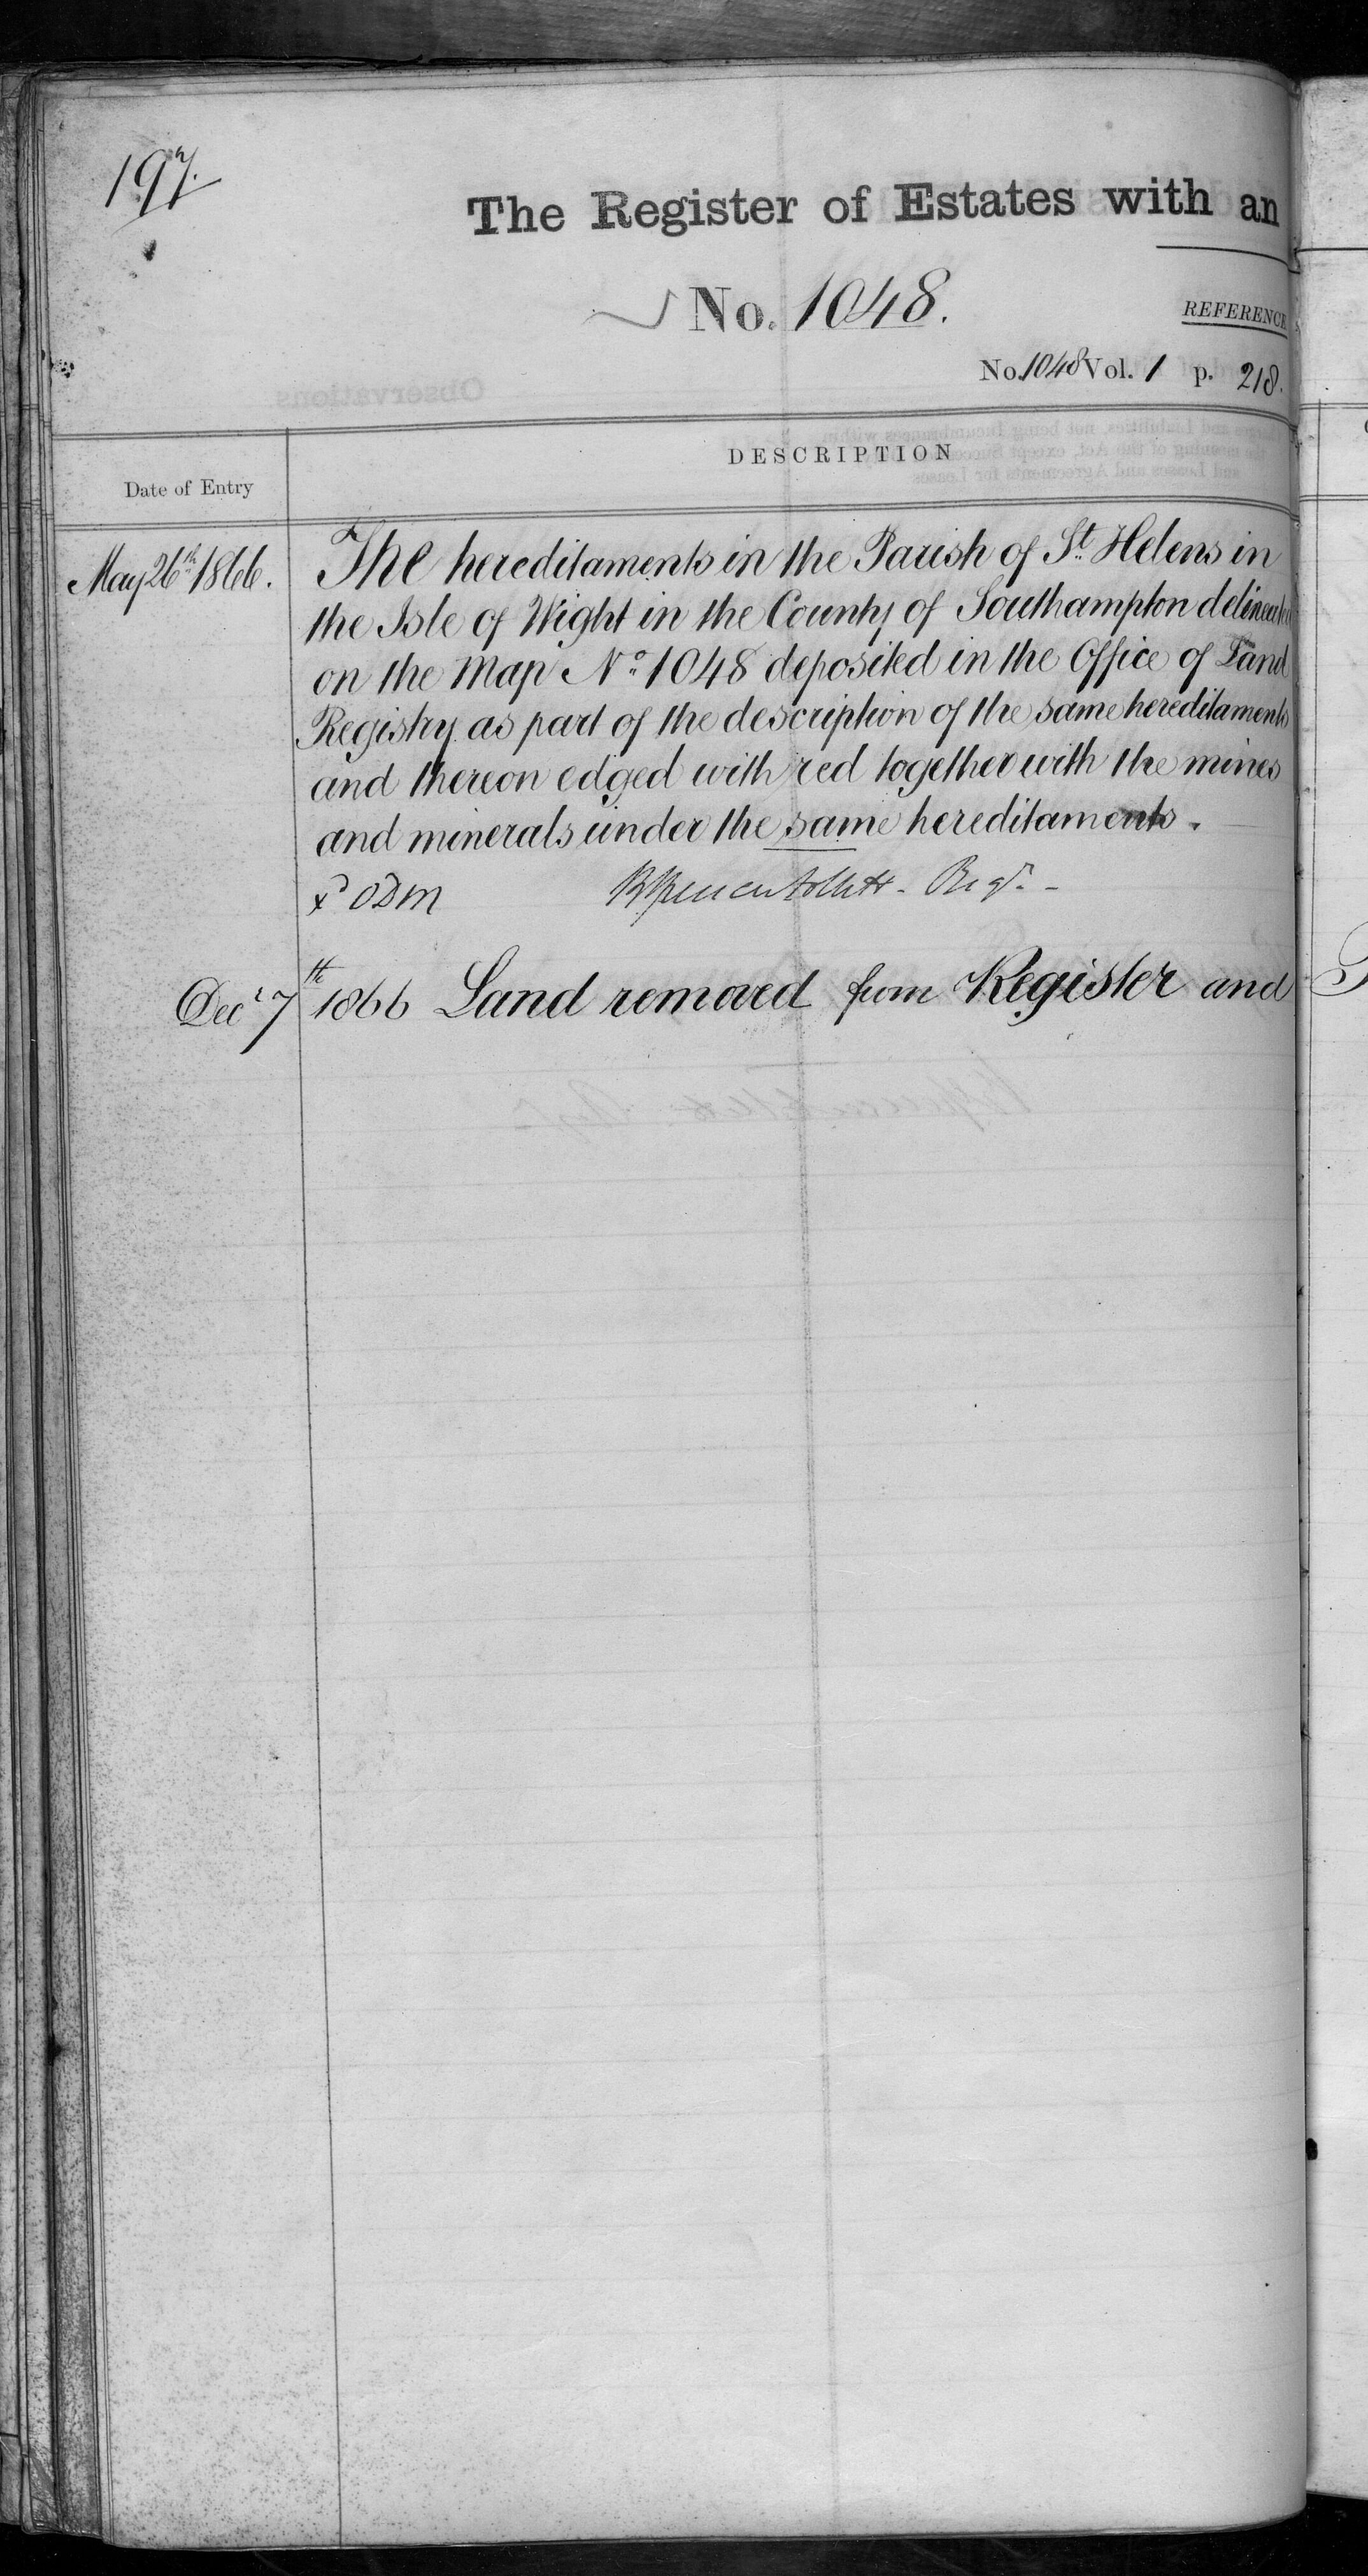 197.
The Register of Estates with an
No. 1048.
REFERENCE
No. 1048 Vol. 1 p. 218.
DESCRIPTION
Date of Entry
May 26th 1866.
The hereditaments in the Parish of St. Helens in
the Isle of Wight in the County of Southampton delineated
on the Map No. 1048 deposited in the Office of Land
Registry as part of the description of the same hereditaments
and thereon edged with red together with the mines
and minerals under the same hereditaments.
ODM
Regr.
Decr 7th 1866 Land removed from Register and